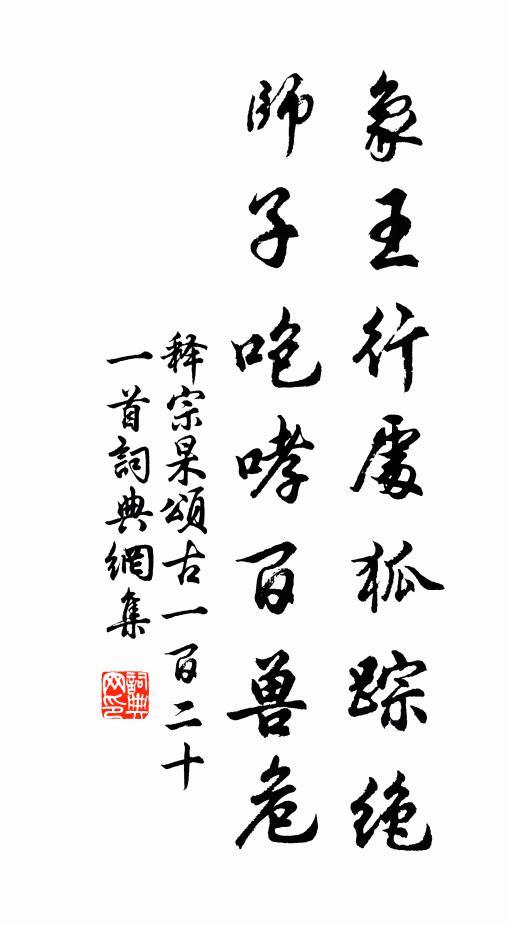 象王行處狐踪絶
師子咆哮百兽危
释宗杲頌古一百二十
一首詞典網集
詞典
网印